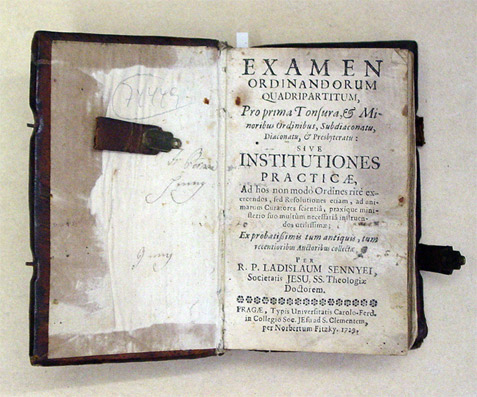 74479
EXAMEN
ORDINANDORUM
QUADRIPARTITUM,
Pro prima Tonsura, & Mi-
noribus Ordinibus, Subdiaconatu,
Diaconatu, & Presbyteratu:
SIVE
INSTITUTIONES
PRACTICÆ,
Ad hos non modò Ordines ritè ex-
ercendos, sed Resolutiones etiam, ad ani-
marum Curatores scientiâ, praxique mini-
sterio suo multùm necessariâ instruen-
dos utilissimæ;
Ex probatissimis tum antiquis, tum
recentioribus Auctoribus collectæ,
PER
R. P. LADISLAUM SENNYEI,
Societatis JESU, SS. Theologiæ
Doctorem.
PRAGÆ, Typis Universitatis Carolo-Ferd.
in Collegio Soc. JEsu ad S. Clementem,
per Norbertum Fitzky. 1729.